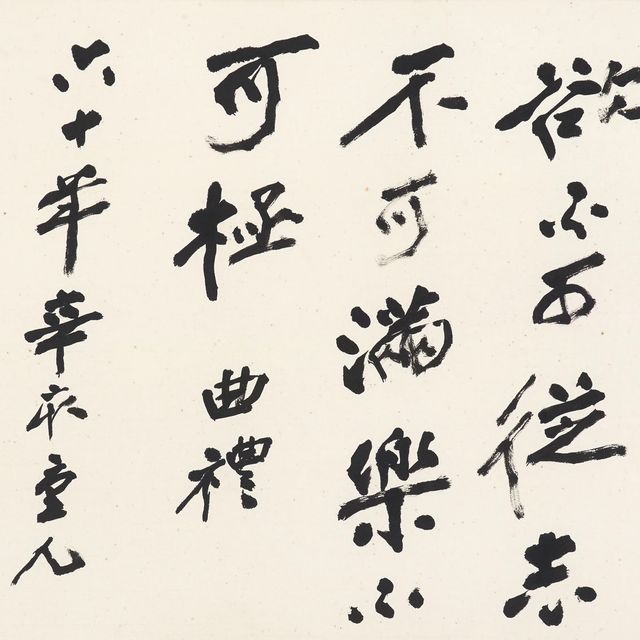 欲不可從志
不可滿樂不
可極 曲禮
六十年辛亥人